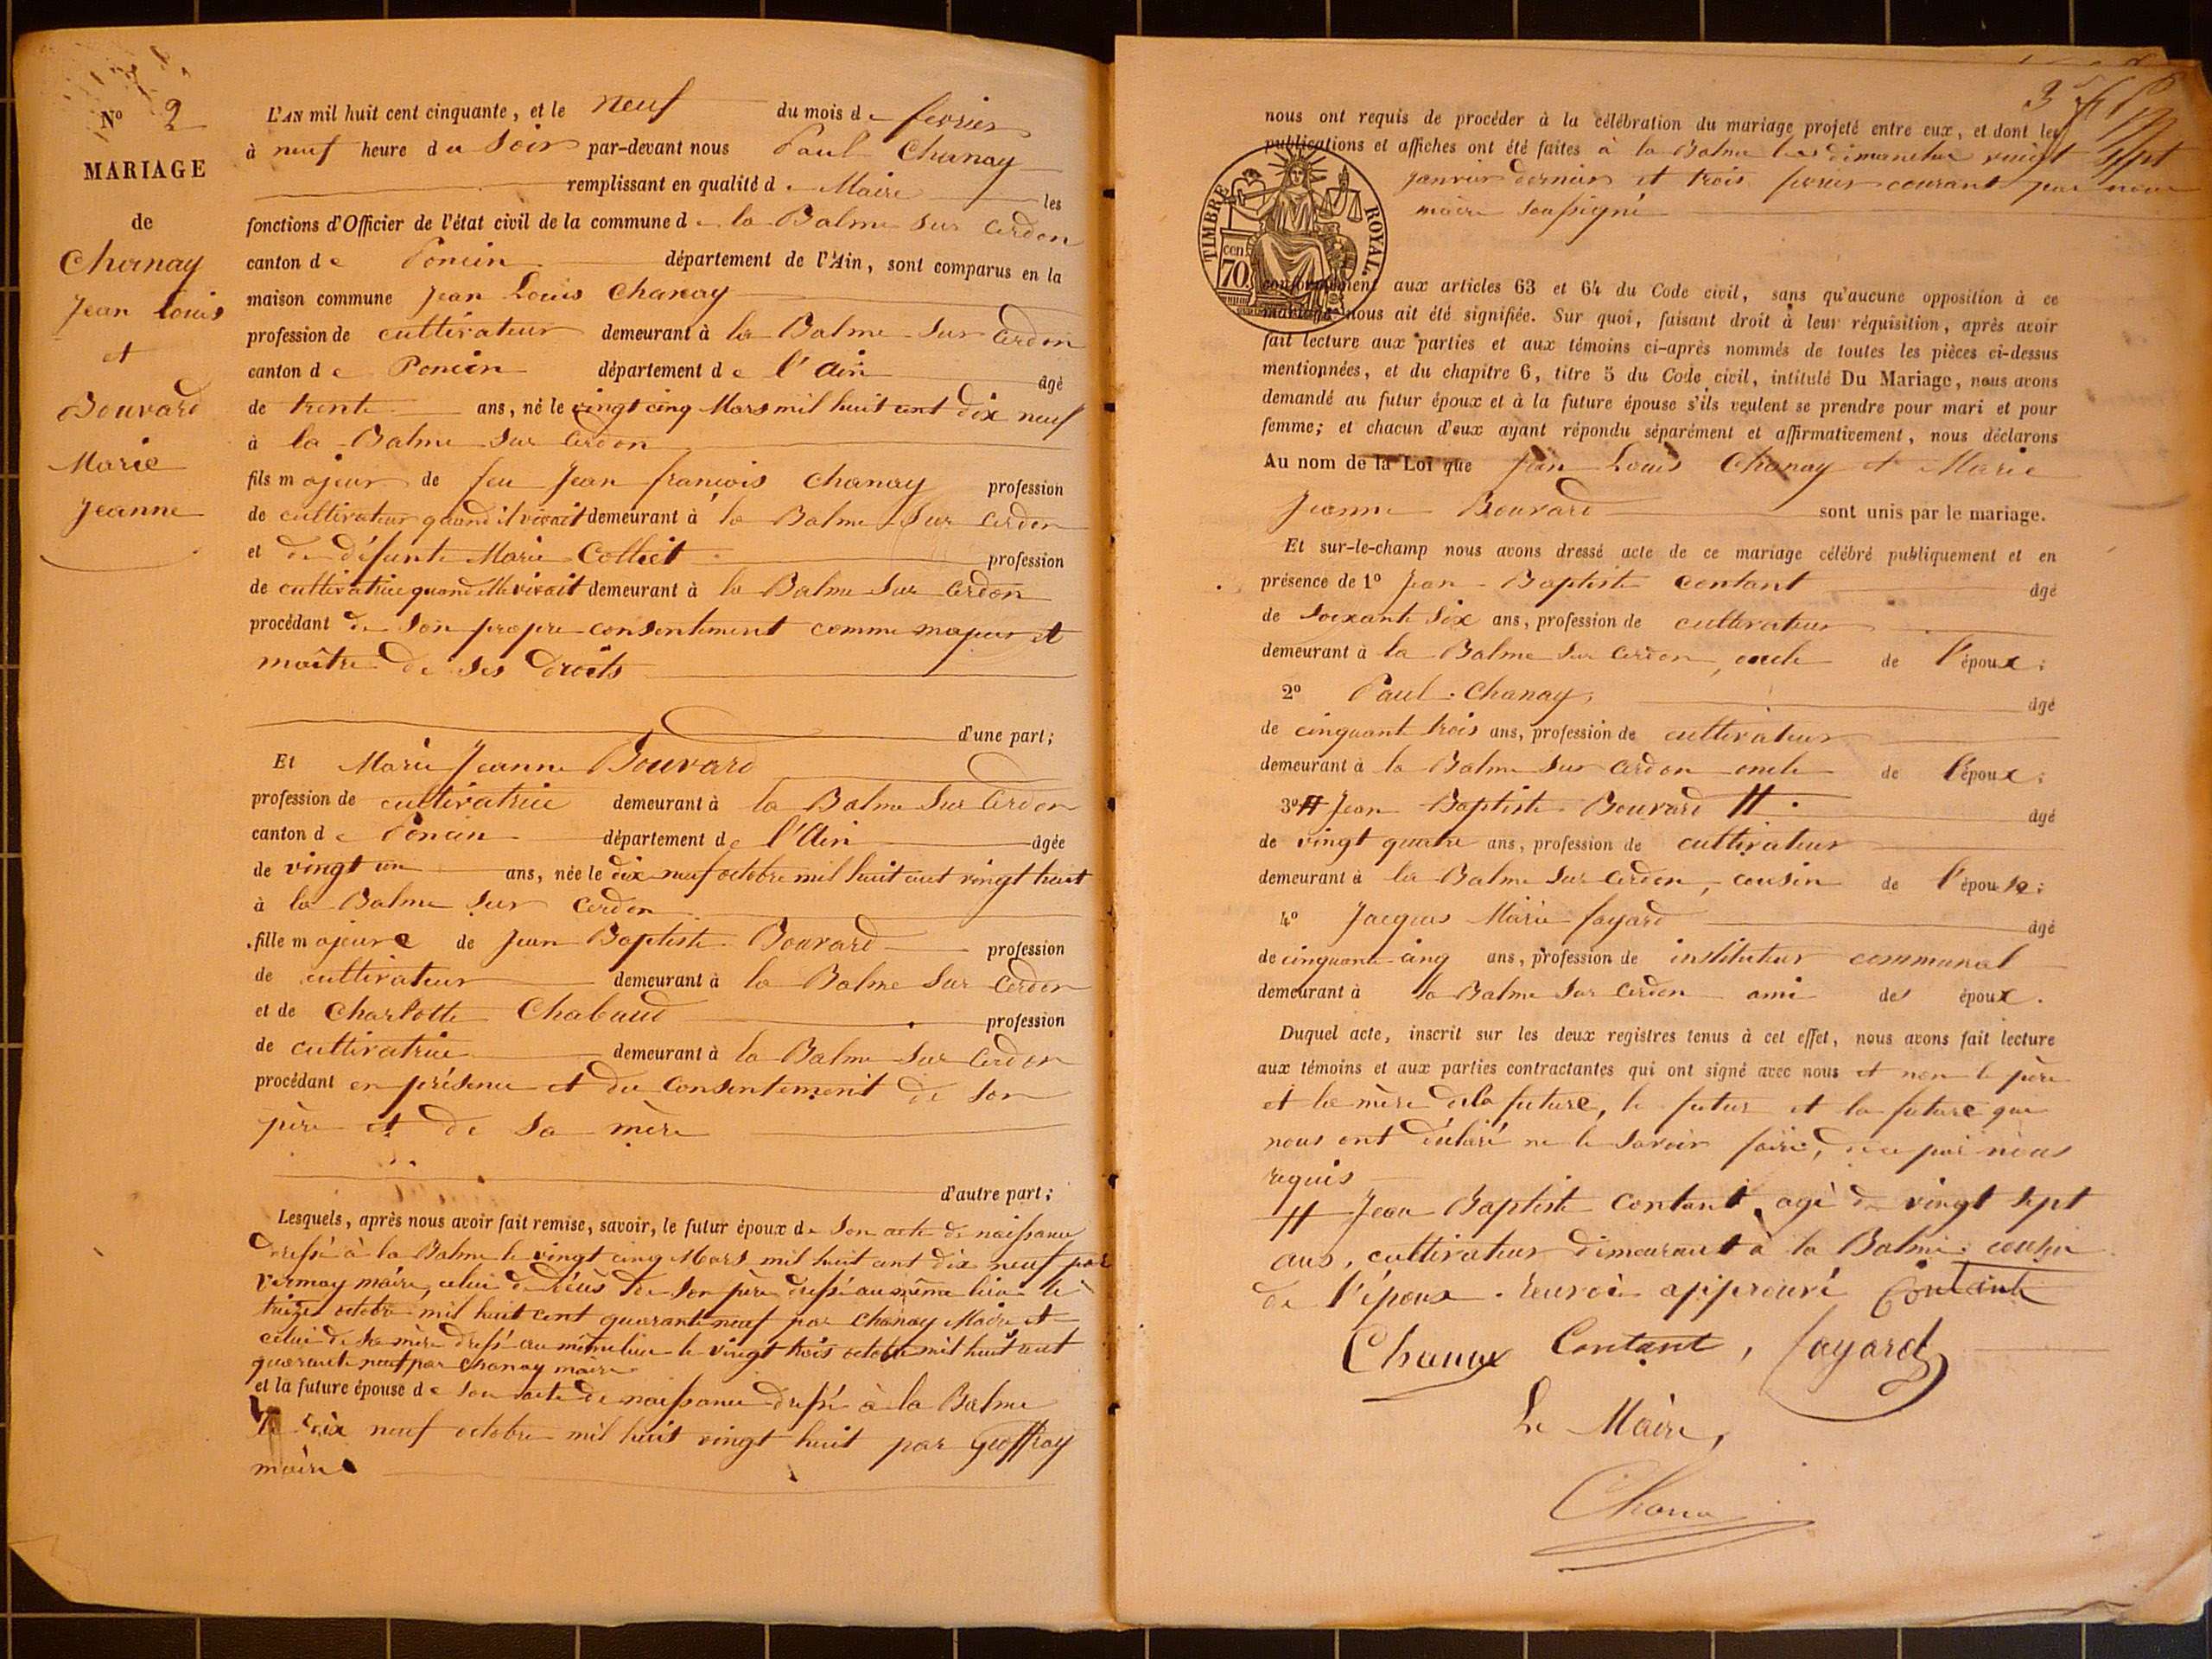 N° 2
MARIAGE
de
Chanay
Jean Louis
et
Bouvard
Marie
Jeanne
L'AN mil huit cent cinquante, et le neuf du mois de fevrier
à neuf heure du Soir par-devant nous Paul Chanay
remplissant en qualité de Maire les
fonctions d'Officier de l'état civil de la commune de la Balme sur Cerdon
canton de Poncin département de l'Ain, sont comparus en la
maison commune Jean Louis Chanay
profession de cultivateur demeurant à la Balme sur Cerdon
canton de Poncin département de l'Ain âgé
de trente ans, né le vingt cinq Mars mil huit cent dix neuf
à la Balme sur Cerdon
fils majeur de feu Jean françois Chanay profession
de cultivateur quand il vivait demeurant à la Balme sur Cerdon
et de défunte Marie Colliet profession
de cultivatrice quand elle vivait demeurant à la Balme sur Cerdon
procédant de son propre consentement comme majeur et
maître de ses droits
d'une part;
Et Marie Jeanne Bouvard
profession de cultivatrice demeurant à la Balme sur Cerdon
canton de Poncin département de l'Ain âgée
de vingt un ans, née le dix neuf octobre mil huit cent vingt huit
à la Balme sur Cerdon
fille majeure de Jean Baptiste Bouvard profession
de cultivateur demeurant à la Balme sur Cerdon
et de Charlotte Chabaud profession
de cultivatrice demeurant à la Balme sur Cerdon
procédant en présence et du consentement de son
père et de sa mère
d'autre part;
Lesquels, après nous avoir fait remise, savoir, le futur époux de son acte de naissance
dressé à la Balme le vingt cinq Mars mil huit cent dix neuf par
Vernay maire, celui de décès de son père dressé au même lieu le
treize octobre mil huit cent quarante neuf par Chanay Maire et
celui de sa mère dressé au même lieu le vingt trois octobre mil huit cent
quarante neuf par Chanay maire
et la future épouse de son acte de naissance dressé à la Balme
le dix neuf octobre mil huit vingt huit par Geoffray
maire
nous ont requis de procéder à la célébration du mariage projeté entre eux, et dont les
publications et affiches ont été faites à la Balme les dimanches vingt sept
janvier dernier et trois fevrier courant par nous
maire soussigné
TIMBRE ROYAL.
cen. 70
conformément aux articles 63 et 64 du Code civil, sans qu'aucune opposition à ce
mariage nous ait été signifiée. Sur quoi, faisant droit à leur réquisition, après avoir
fait lecture aux parties et aux témoins ci-après nommés de toutes les pièces ci-dessus
mentionnées, et du chapitre 6, titre 5 du Code civil, intitulé Du Mariage, nous avons
demandé au futur époux et à la future épouse s'ils veulent se prendre pour mari et pour
femme; et chacun d'eux ayant répondu séparément et affirmativement, nous déclarons
Au nom de la Loi que Jean Louis Chanay et Marie
Jeanne Bouvard sont unis par le mariage.
Et sur-le-champ nous avons dressé acte de ce mariage célébré publiquement et en
présence de 1° Jean-Baptiste Contant âgé
de soixante six ans, profession de cultivateur
demeurant à la Balme sur Cerdon, oncle de l'époux;
2° Paul Chanay, âgé
de cinquant trois ans, profession de cultivateur
demeurant à la Balme sur Cerdon oncle de l'époux;
3° # Jean Baptiste Bouvard # âgé
de vingt quatre ans, profession de cultivateur
demeurant à la Balme sur Cerdon, cousin de l'épouse;
4° Jacques Marie fayard âgé
de cinquante cinq ans, profession de instituteur communal
demeurant à la Balme sur Cerdon ami des époux.
Duquel acte, inscrit sur les deux registres tenus à cet effet, nous avons fait lecture
aux témoins et aux parties contractantes qui ont signé avec nous et non le père
et la mère de la future, le futur et la future que
nous ont déclaré ne le savoir faire, de ce par nous
requis
# Jean Baptiste Contant, agé de vingt sept
ans, cultivateur demeurant à la Balme cousin
de l'époux. renvoi approuvé Contant
Chanay Contant, fayard
Le Maire,
Chana